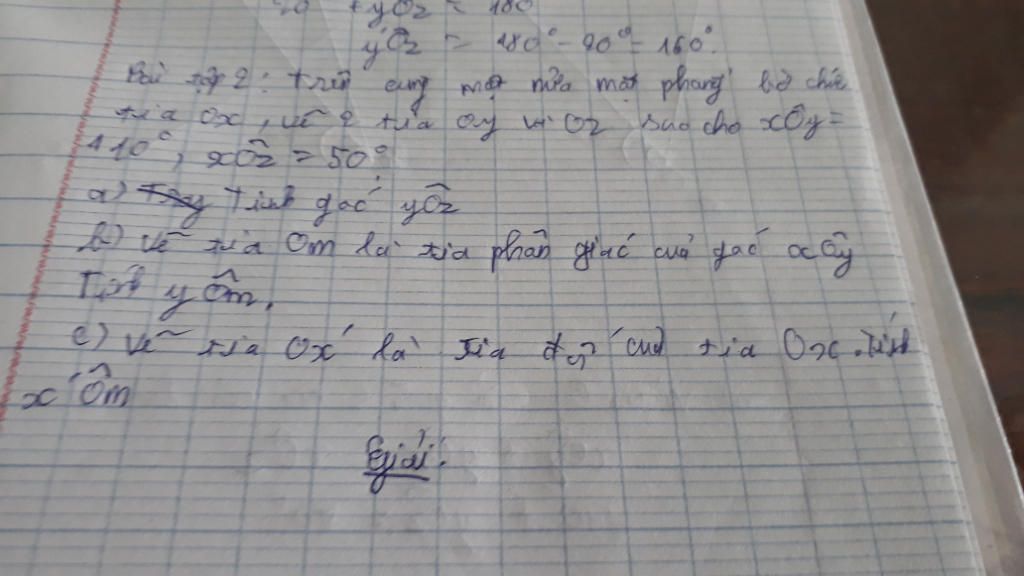 + yOz = 180
yÔz = 180° - 20° = 160°.
Bài tập 2: trên cùng một nửa mặt phẳng bờ chứa
tia Ox, vẽ 2 tia Oy và Oz sao cho xÔy =
110°, xÔz = 50°
a) Tính góc yÔz
b) vẽ tia Om là tia phân giác của góc xÔy
Tính yÔm.
c) vẽ tia Ox' là tia đối của tia Ox. Tính
x'Ôm
Giải: